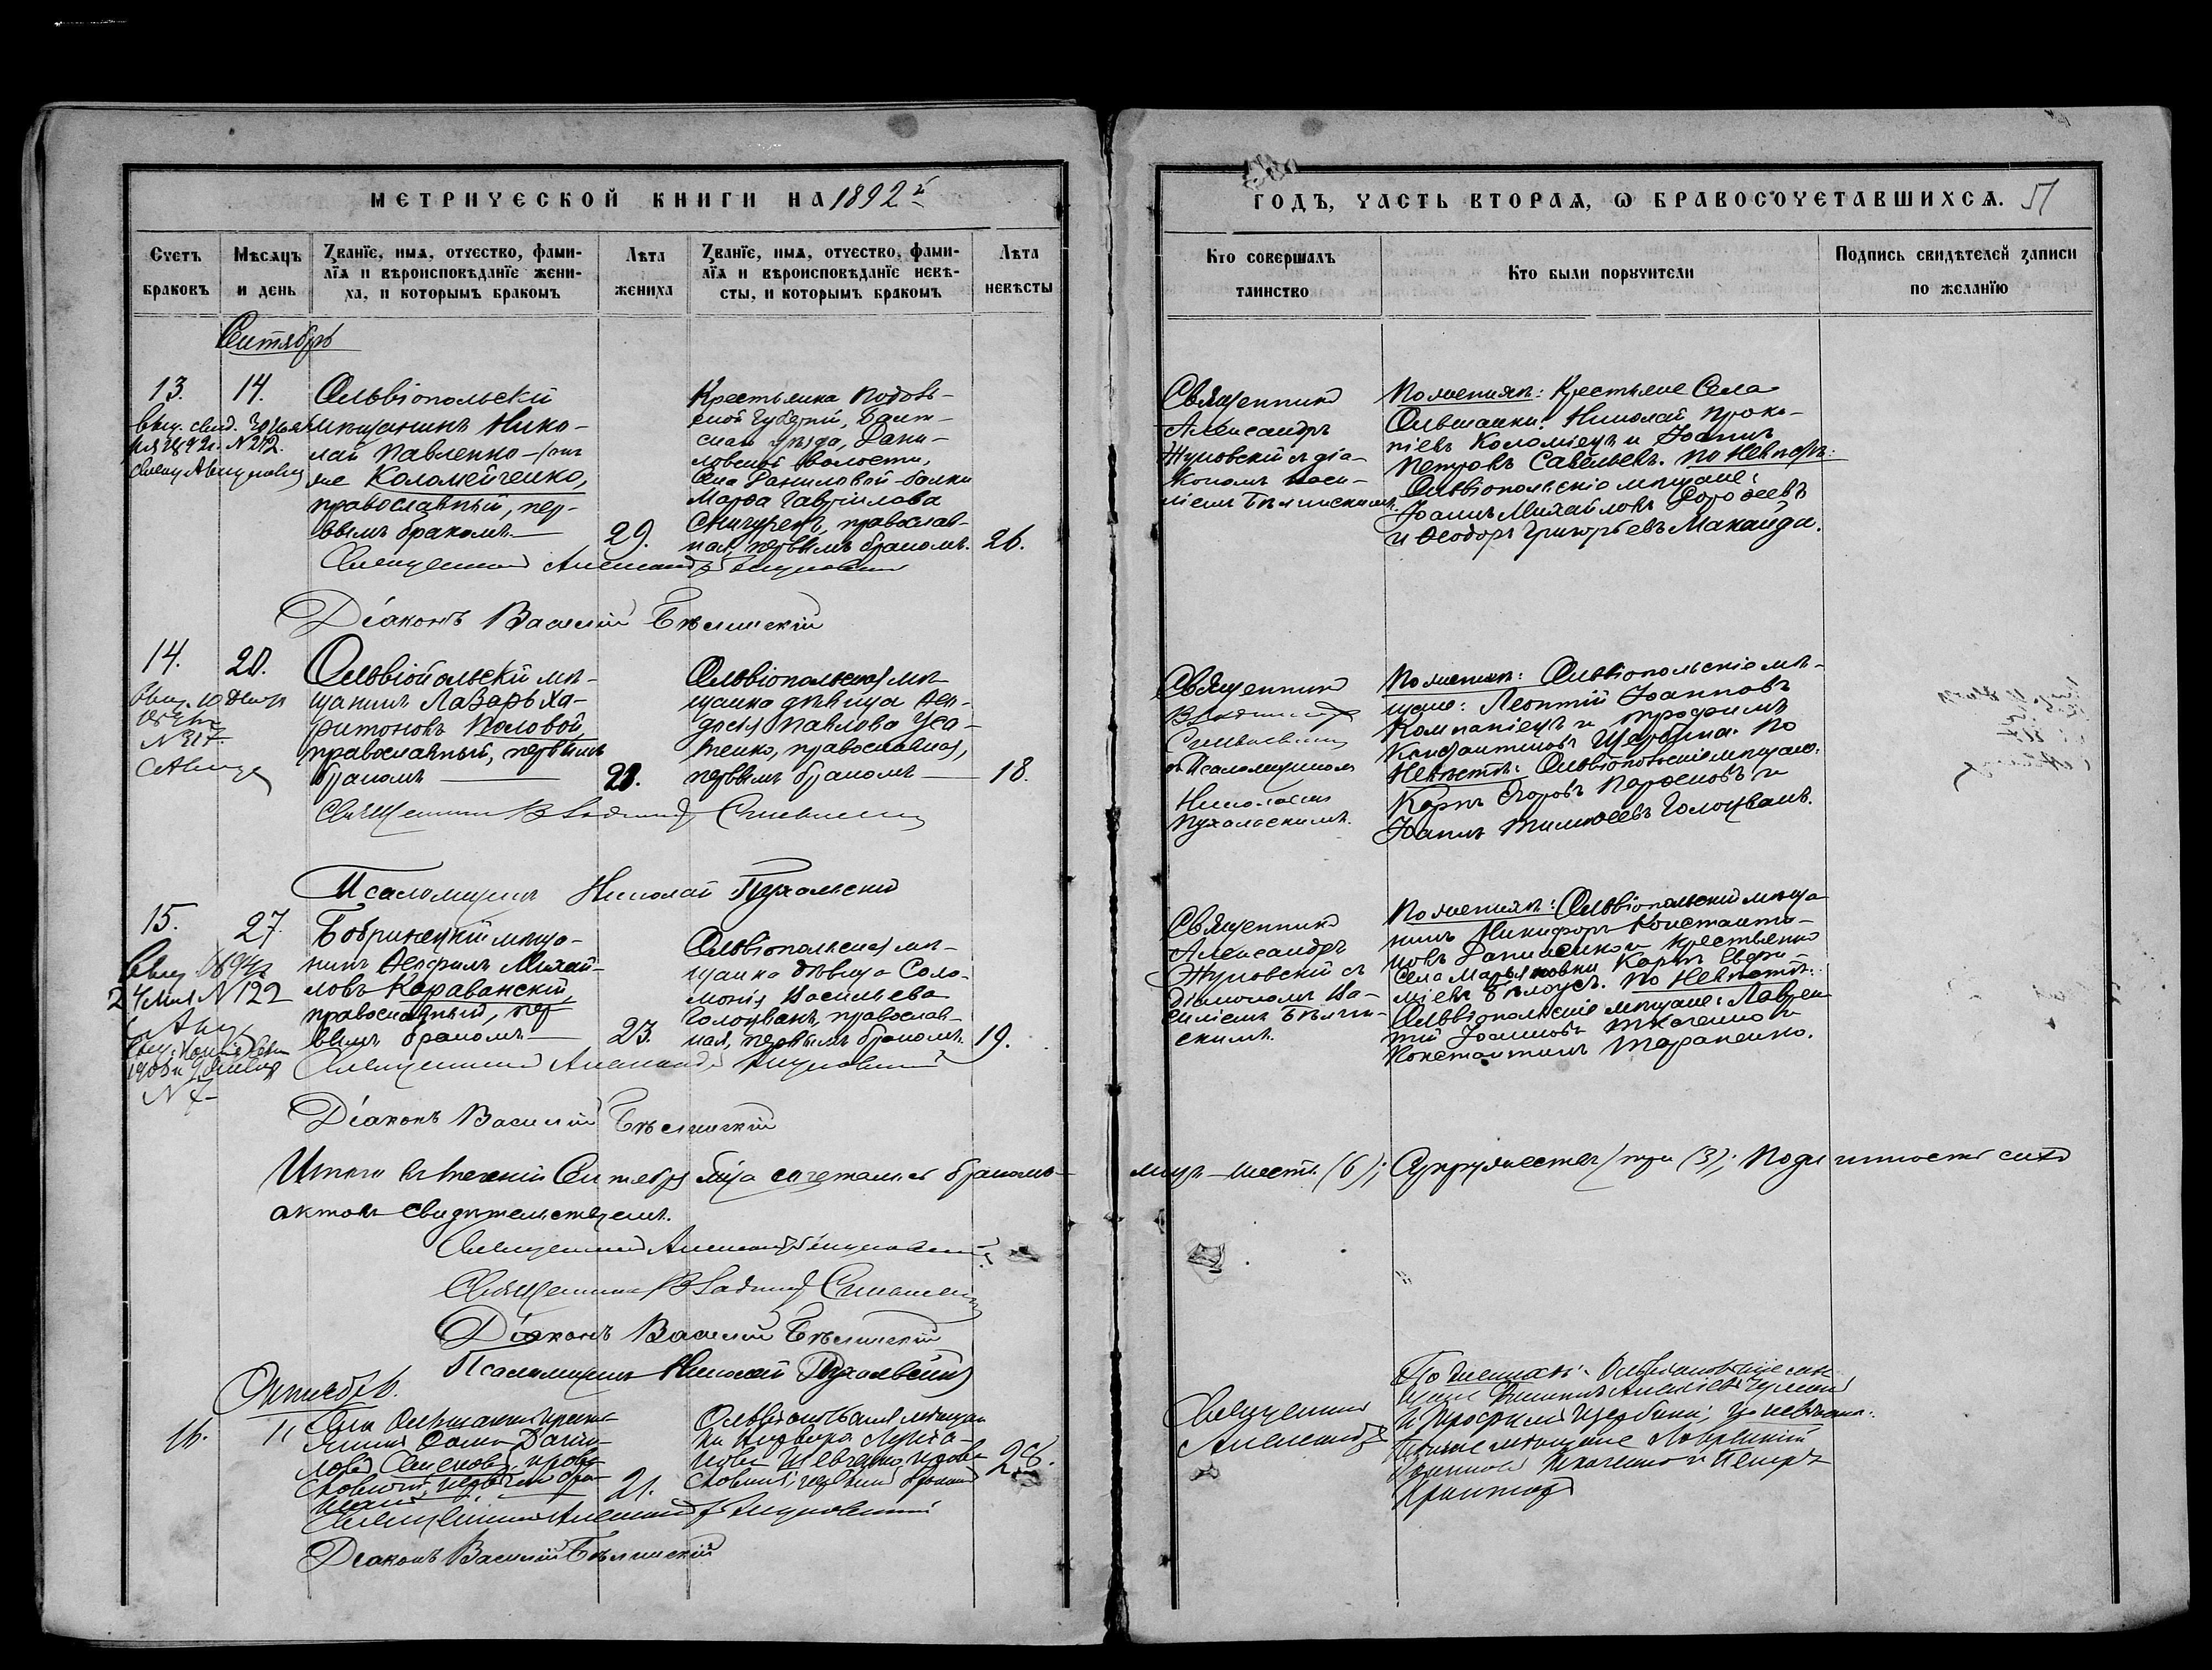 МЕТРИЧЕСКОЙ КНИГИ НА 1892й
ГОДЪ, ЧАСТЬ ВТОРАЯ, Ѡ БРАКОСОЧЕТАВШИХСЯ. 51
Счетъ браковъ
Мѣсяцъ и день
Званїе, имя, отчество, фами-
лїя и вѣроисповѣданїе жени-
ха, и которымъ бракомъ
Лѣта жениха
Званїе, имя, отчество, фами-
лїя и вѣроисповѣданїе невѣ-
сты, и которымъ бракомъ
Лѣта невѣсты
Кто совершалъ
таинство
Кто были поручители
Подпись свидѣтелей записи
по желанїю
Сентябрь
13. 14.
Ольвіопольскій
мѣщанинъ Нико-
лай Павленко-
Коломейченко,
православный, пер-
вымъ бракомъ
29.
Крестьянка Подоль-
ской Губерніи, Балт-
скаго уѣзда, Дани-
ловской волости,
Села Даниловой-балки
Марѳа Гаврилова
православ-
ная, первымъ бракомъ.
26.
Священникъ
Александръ
Жуковскій съ діа-
кономъ Васи-
ліемъ Бѣлинскимъ.
По женихѣ: Крестьяне Села
Ольшанки: Николай Проко-
піевъ Коломіецъ и Іоаннъ
Петровъ Савельевъ. По невѣстѣ:
Ольвіопольскіе мѣщане:
Іоаннъ Михайловъ
и Ѳеодоръ Григорьевъ Макайда.
Священникъ Александръ Жуковскій
Діаконъ Василій Бѣлинскій
14. 20.
№ 317.
Ольвіопольскій мѣ-
щанинъ Лазарь Ха-
ритоновъ Половой,
православный, первымъ
бракомъ
23.
Ольвіопольская мѣ-
щанка дѣвица
Павлова
православная,
первымъ бракомъ
18.
Священникъ
Владиміръ
съ Псаломщикомъ
Николаемъ
Пухальскимъ.
По женихѣ: Ольвіопольскіе мѣ-
щане: Леонтій Іоанновъ
Компаніецъ и Трофимъ
Константиновъ Щербина. По
Невѣстѣ: Ольвіопольскіе мѣщане:
Карпъ Егоровъ и
Іоаннъ Тимоѳеевъ Голоцванъ.
Священникъ Владиміръ
Псаломщикъ Николай Пухальскій
15. 27.
№ 122
Бобринецкій мѣща-
нинъ Ѳеофилъ Михай-
ловъ Караванскій,
православный, пер-
вымъ бракомъ
23.
Ольвіопольская мѣ-
щанка дѣвица Соло-
монія Васильева
Голоцванъ, православ-
ная, первымъ бракомъ.
19.
Священникъ
Александръ
Жуковскій съ
діакономъ Ва-
силіемъ Бѣлин-
скимъ.
По женихѣ: Ольвіопольскій мѣща-
нинъ Никифоръ Константи-
новъ и крестьянинъ
Села Марьяновки Карпъ Евфи-
міевъ Бѣлоусъ. По Невѣстѣ:
Ольвіопольскіе мѣщане: Лаврен-
тій Іоанновъ Ткаченко и
Константинъ Тараненко.
Священникъ Александръ Жуковскій
Діаконъ Василій Бѣлинскій
Итого въ теченіи Сентября м-ца сочеталось бракомъ
лицъ - шесть (6); Супружествъ три (3); Подлинность сихъ
актовъ свидѣтельствуемъ.
Священникъ Александръ Жуковскій
Священникъ Владиміръ
Діаконъ Василій Бѣлинскій
Псаломщикъ Николай Пухальскій
Октябрь.
16. 11
Села Ольшанки кресть-
янинъ Данi-
ловъ право-
славный, первымъ бра-
комъ
21.
мѣщан-
ка
Шевченко, право-
славный, первымъ бракомъ
28.
Священникъ
Александръ
По женихѣ:
и Трофимъ Щербина; по невѣстѣ:
мѣщане Лаврентій
Іоанновъ Ткаченко и Петръ
Священникъ Александръ Жуковскій
Діаконъ Василій Бѣлинскій